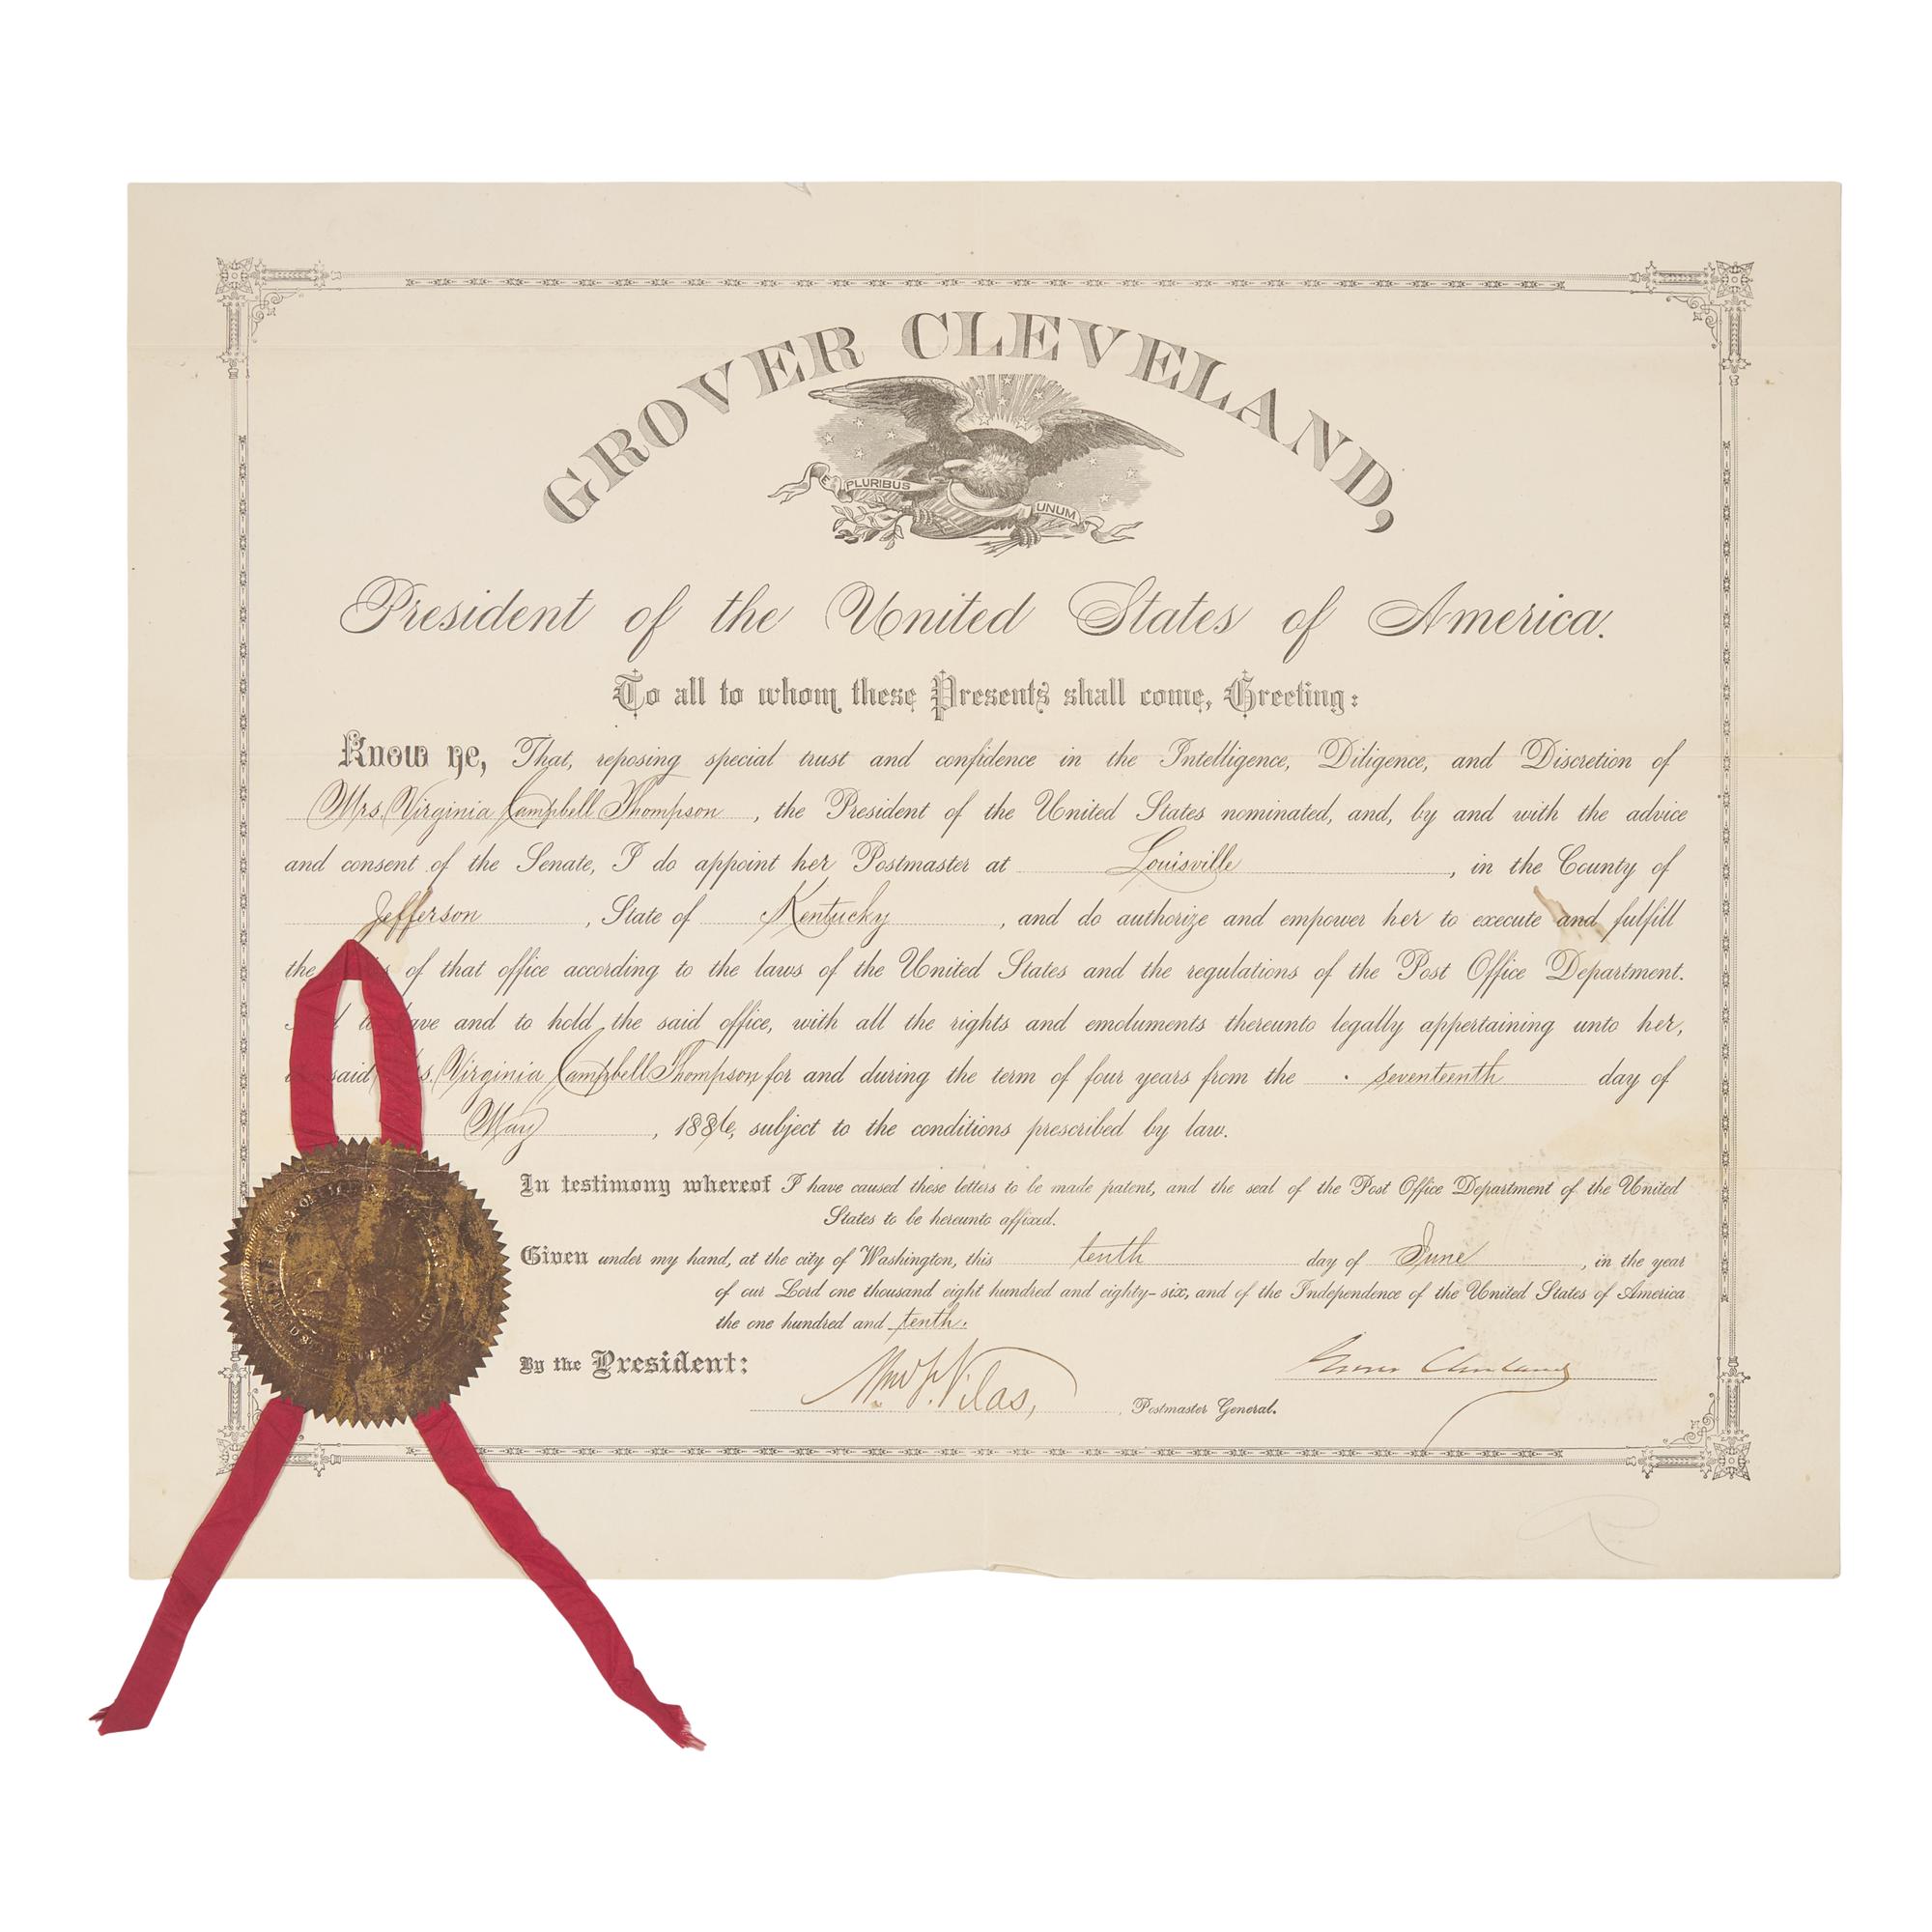 GROVER CLEVELAND,
E PLURIBUS UNUM
President of the United States of America.
To all to whom these Presents shall come, Greeting:
Know ye, That, reposing special trust and confidence in the Intelligence, Diligence, and Discretion of
Mrs. Virginia Campbell Thompson, the President of the United States nominated, and, by and with the advice
and consent of the Senate, I do appoint her Postmaster at Louisville, in the County of
Jefferson, State of Kentucky, and do authorize and empower her to execute and fulfill
the of that office according to the laws of the United States and the regulations of the Post Office Department.
have and to hold the said office, with all the rights and emoluments thereunto legally appertaining unto her,
said Mrs. Virginia Campbell Thompson for and during the term of four years from the seventeenth day of
May, 1886, subject to the conditions prescribed by law.
In testimony whereof I have caused these letters to be made patent, and the seal of the Post Office Department of the United
States to be hereunto affixed.
Given under my hand, at the city of Washington, this tenth day of June, in the year
of our Lord one thousand eight hundred and eighty-six, and of the Independence of the United States of America
the one hundred and tenth.
By the President:
Grover Cleveland
Wm F. Vilas,
Postmaster General.